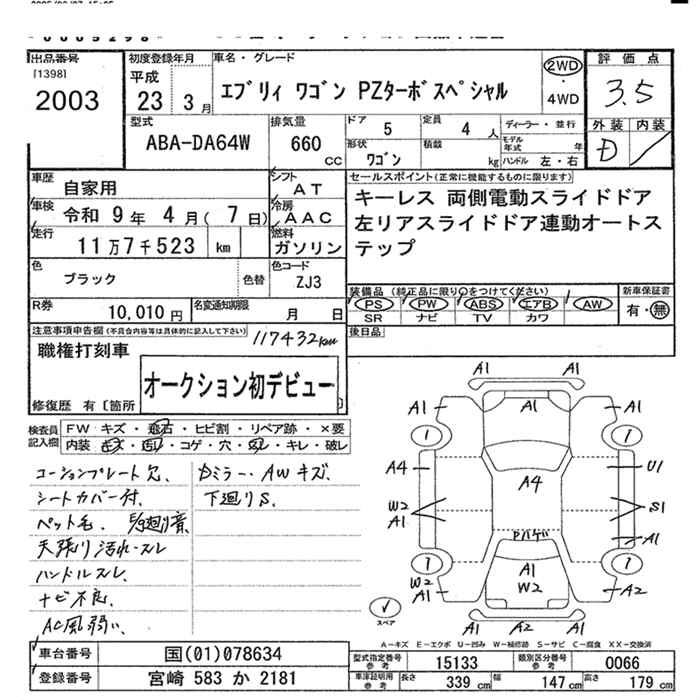 出品番号
[1398]
2003
初度登録年月
平成
23 3 月
車名・グレード
エブリィ ワゴン PZターボスペシャル
2WD
・
4WD
評価点
3.5
外装 内装
型式
ABA-DA64W
排気量
660
CC
ドア 5
形状 ワゴン
定員 4 人
積載 kg
ディーラー・並行
モデル年式 年
ハンドル 左・右
車歴 自家用
シフト AT
車検 令和 9 年 4 月 ( 7 日)
冷房 AAC
走行 11 万 7 千 523 km
燃料 ガソリン
色 ブラック 色替
色コード ZJ3
R券 10,010 円
名変通知期限 月 日
セールスポイント(正常に機能するものに限ります)
キーレス 両側電動スライドドア
左リアスライドドア連動オートス
テップ
装備品 (純正品に限り○をつけてください)
PS PW ABS エアB AW
SR ナビ TV カワ
新車保証書
有・無
後日品
注意事項申告欄(不具合内容等は具体的に記入して下さい)
117432km
職権打刻車
オークション初デビュー
修復歴 有 [箇所
検査員
記入欄
FW キズ・飛石・ヒビ割・リペア跡・×要
内装 キズ・汚れ・コゲ・穴・スレ・キレ・破レ
コーションプレート欠、
シートカバー付、
ペット毛、
天張り汚れ・スレ
ハンドルスレ、
ナビ不良、
AC風弱い、
ミラー、AWキズ、
下廻りS、
A1
A1 A1 A1
1 1
A4 A4 U1
W2 S1
A1 A1
A1
1 1
W2 W2
A2 A1
A1 A2 A1
スペア
A-キズ E-エクボ U-凹み W-補修跡 S-サビ C-腐食 XX-交換済
車台番号 国(01)078634
登録番号 宮崎 583 か 2181
型式指定番号 参考 15133
類別区分番号 参考 0066
車庫証明用 参考 長さ 339 cm 幅 147 cm 高さ 179 cm